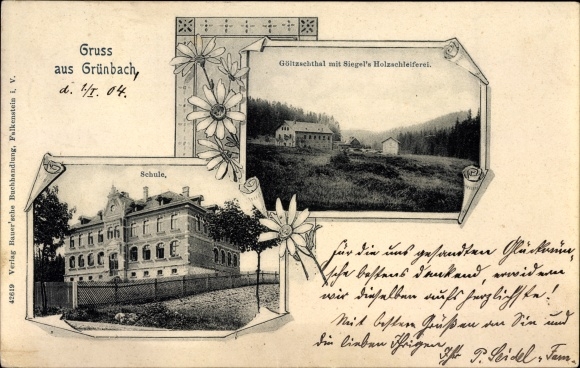 Gruss
aus Grünbach,
d. 1/I. 04.
Göltzschthal mit Siegel's Holzschleiferei.
Schule.
42619 Verlag Bauer'sche Buchhandlung, Falkenstein i. V.
Für die uns gesandten Glückwün-
sche bestens dankend, erwidern
wir dieselben aufs herzlichste!
Mit besten Grüßen an Sie und
die lieben Ihrigen
Ihr P. Seidel u. Fam.